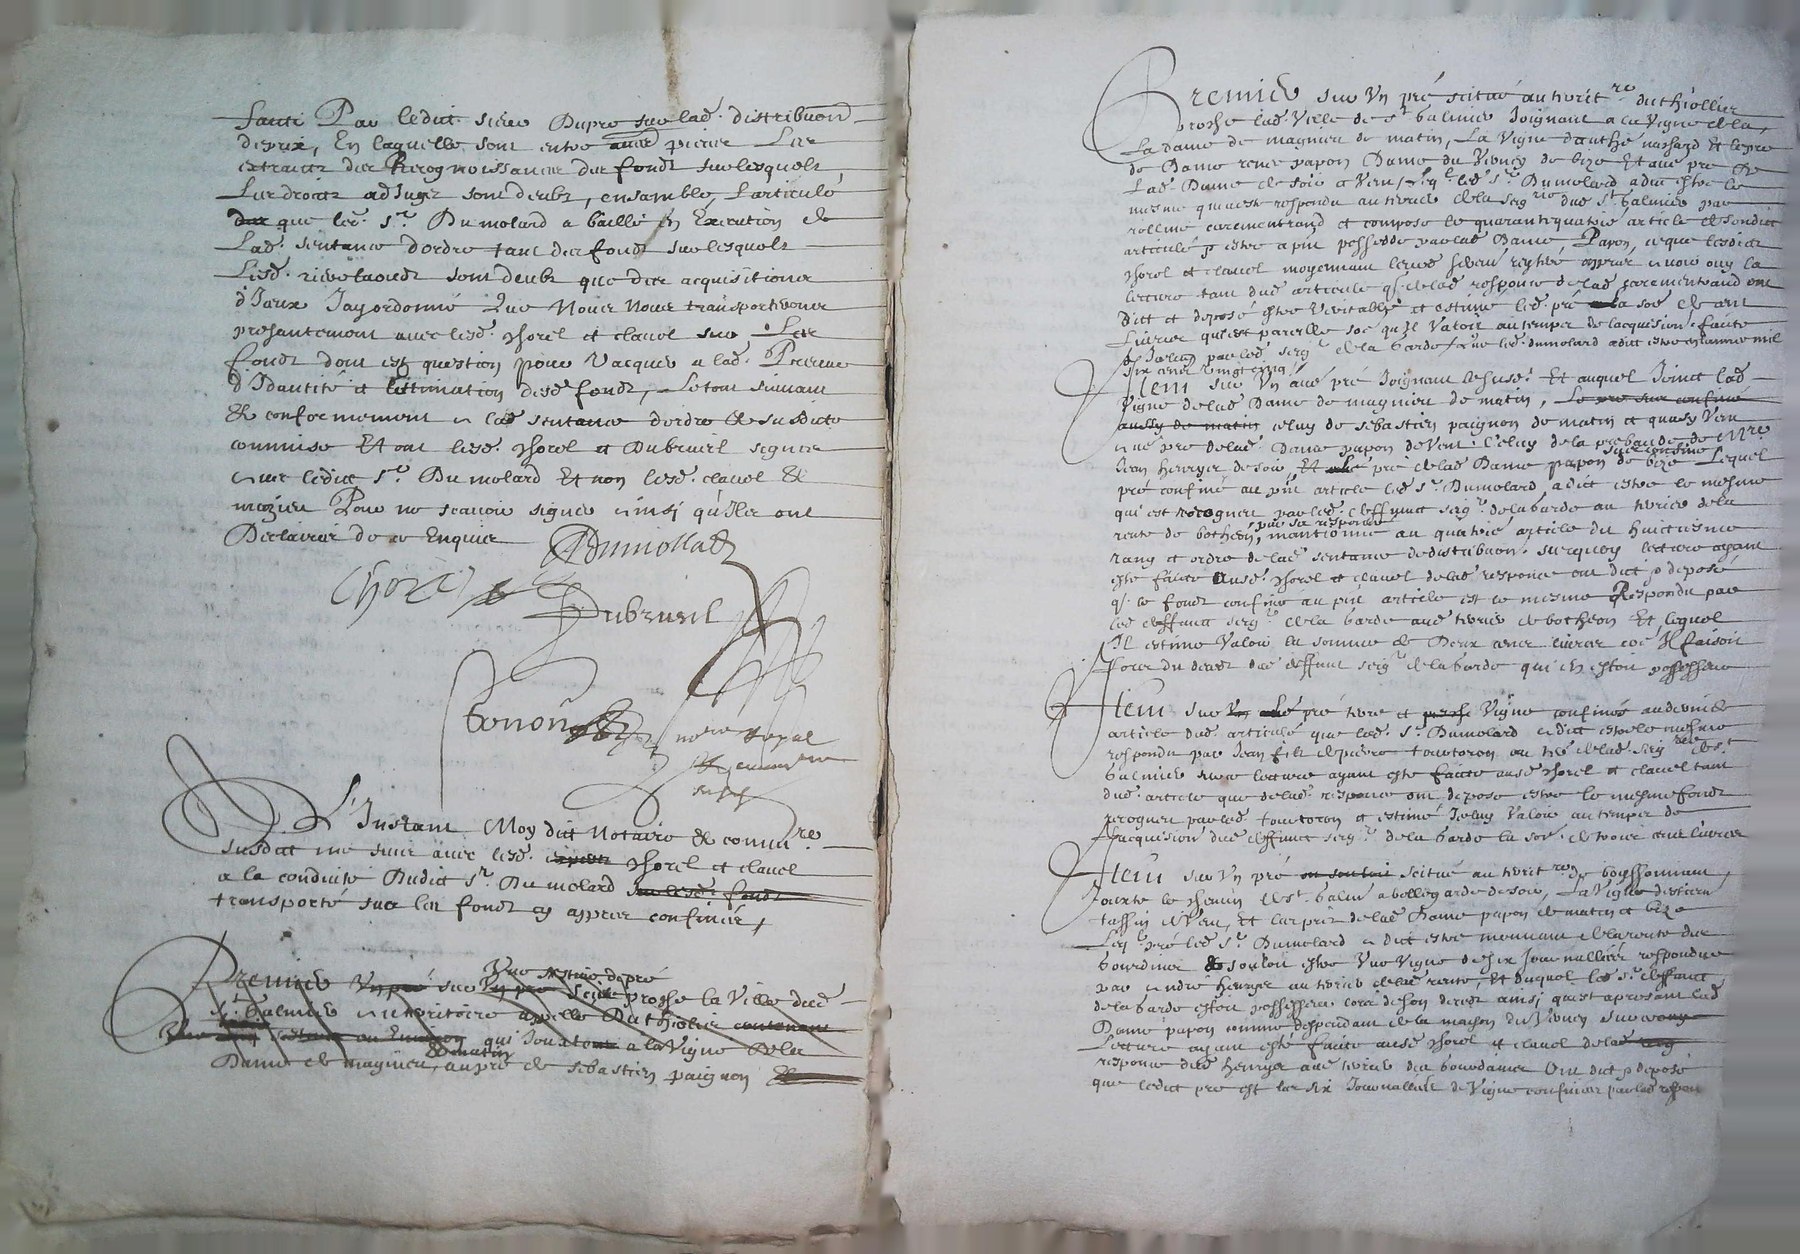 faute Par ledit sieur Dupré sur lad. distribuon
deprix, En laquelle sont entre aultre pieces Les
extraictz des Recognoissances des fondz sur lesquels
Les droitz adjuges sont deubz, ensemble L'articulé
que led. Sr. Dumolard a baillé en Execution de
Lad. sentance d'ordre tant des fondz sur lesquels
sont deubz que des acquisitions
d'Iceux Jay ordonné Que Nous nous transporterons
presantement avec lesd. Chorel et clavel sur Les
fondz dont est question pour Vacquer a lad. Preuve
d'Idantité et Estimation desd. fondz, Le tout suivant
& conformement a lad. sentance d'ordre & susdicte
commise Et ont lesd. Chorel et Dubrueil signes
avec ledict Sr. Dumolard Et non lesd. clavel &
mozieu Pour ne scavoir signer ainsi qu'Ils ont
Desclairé de ce Enquis Dumollard
Chorel
Dubrueil
nore Royal
A L'Instant Moy dict Notaire & commre
susdict me suis avec lesd. Chorel et clavel
a la conduite Dudict Sr. Dumolard sur lesd. fondz
transporté sur les fondz cy appres confinés,
Vne de pré
Premier Vn pré sur Vn pré Scitué prosse la Ville dud.
St. Galmier au territoire appellé Du thiolier contenant
qui Joint a la Vigne de la
de matin
Dame de magnieu, au pré de sebastien paignon &
Premier sur Vn pré scitué au territre. du thiollier
prosse lad. Ville de St. Galmier Joignant a la Vigne de la
La dame de magnieu de matin, La Vigne d'anthe nassard Et le pré
de Dame rene papon Dame du Verney de bize Et aue pré de
Lad. Dame de soir a Vent, led. Sr. Dumolard a dict estre le
mesme qui a esté respondu au terrier de la Seigrie dud. St. Galmier par
et composé le quarantiquatrie article de sondict
articulé p estre a pnt possedé par lad. Dame Papon, ce que lesdictz
Chorel et clavel moyennant leursd. serment reiteré appres avoir ouy la
lecture tant dud. articulé q. de lad. responce de lad. ont
Dict et deposé estre Veritable et estimé led. pré la soe de cent
Livres pareille soe qu'Il Valoit au temps de lacquisition faicte
d'Iceluy par led. Seigr de la Garde que led. dumolard a dict estre en lannée mil
six cent vingt cinq
Item sur Vn aué pré Joignant le susd. Et auquel Joinct lad.
Vigne de lad. Dame de magnieu de matin, Le pré sur confiné
aussy de matin celuy de sebastien paignon de matin et quasy Vent
aué pré de lad. Dame papon de Vent, Celuy de la prebande de Mre
sur confiné
Jean henryer de soir, Et pré de lad. Dame papon de bize Lequel
pré confiné au pnt article led. Sr. Dumolard a dict estre le mesme
qui est recogneu par led. deffunct Seigr de la Garde au terrier de la
par sa responce
rente de botheon, mantionné au quatrie article du huictiesme
rang et ordre de lad. sentance de distribuon. Surquoy lecture ayant
esté faicte ausd. Chorel et clavel de lad. responce ont dict p deposé
q. le fondz confiné au pnt article est le mesme Respondu par
led. deffunct Seigr. de la Garde aué terrier de botheon Et lequel
Il estime Valoir la somme de Deux cent livres coe Il faisoit
lors du deces dud. deffunt Seigr de la Garde qui En estoit possesseur
Item sur pré terre et Vigne confinés au devisé
article dud. articulé que led. Sr. Dumolard a dict estre le mesme
respondu par Jean fils de pierre toutoron au tré de lad. Seigrie de St.
Galmier sur ce lecture ayant esté faicte ausd. Chorel et clavel tant
dud. article que de lad. responce ont deposé estre le mesme fondz
recogneu par led. toutoron et estimé Iceluy Valoir au temps de
lacquisition dud. deffunct Seigr. de la Garde la soe. de trois cent livres
Item sur Vn pré scitué au territre. de boissonnant,
Jouxte le chemin de St. Galmi a bellegarde de soir, La Vigne d'estienne
tassin de Vent, Et les prés de lad. Dame papon de matin et bize
Leql. pré led. Sr. Dumolard a dict estre mouvant de la rente des
bourdines & souloit estre Vne Vigne de six Journallées respondue
par andre henryer au terrier de lad. rente, Et duquel led. Sr. deffunct
de la Garde estoit possesseur lors de son deces ainsi qu'est apresant lad.
Dame papon comme despendant de la maison du Verney Sur ce
Lecture ayant esté faicte ausd. Chorel et clavel de lad.
responce dud. henryer aué terrier des bourdines Ont dict p deposé
que ledict pré est les six Journallées de Vigne confinées par lad. respon